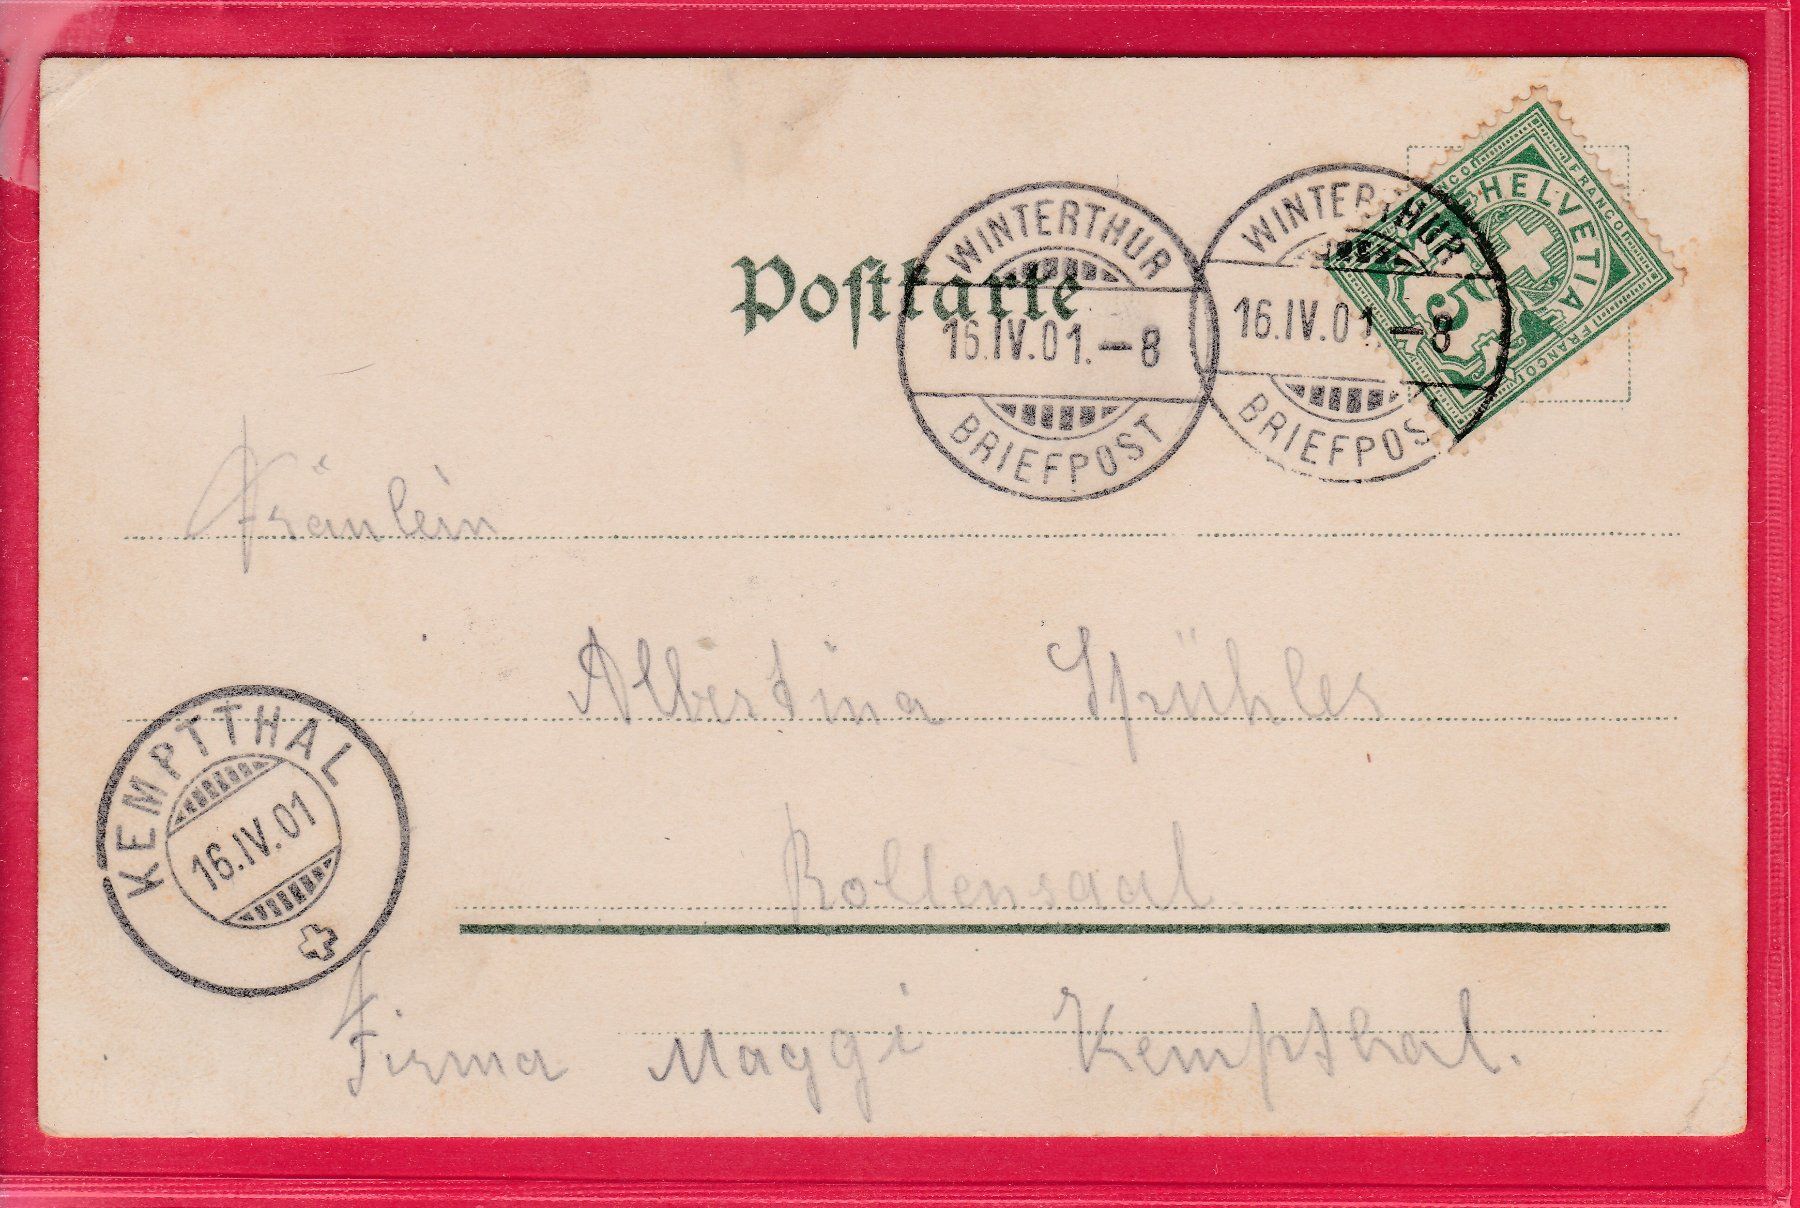 Postkarte
WINTERTHUR
16.IV.01.–8
BRIEFPOST
WINTERTHUR
16.IV.01.–8
BRIEFPOS
FRANCO
FRANCO
FRANCO
HELVETIA
5
Fräulein
Albertina Spühler
Rollensaal
KEMPTTHAL
16.IV.01
Firma Maggi Kempthal.